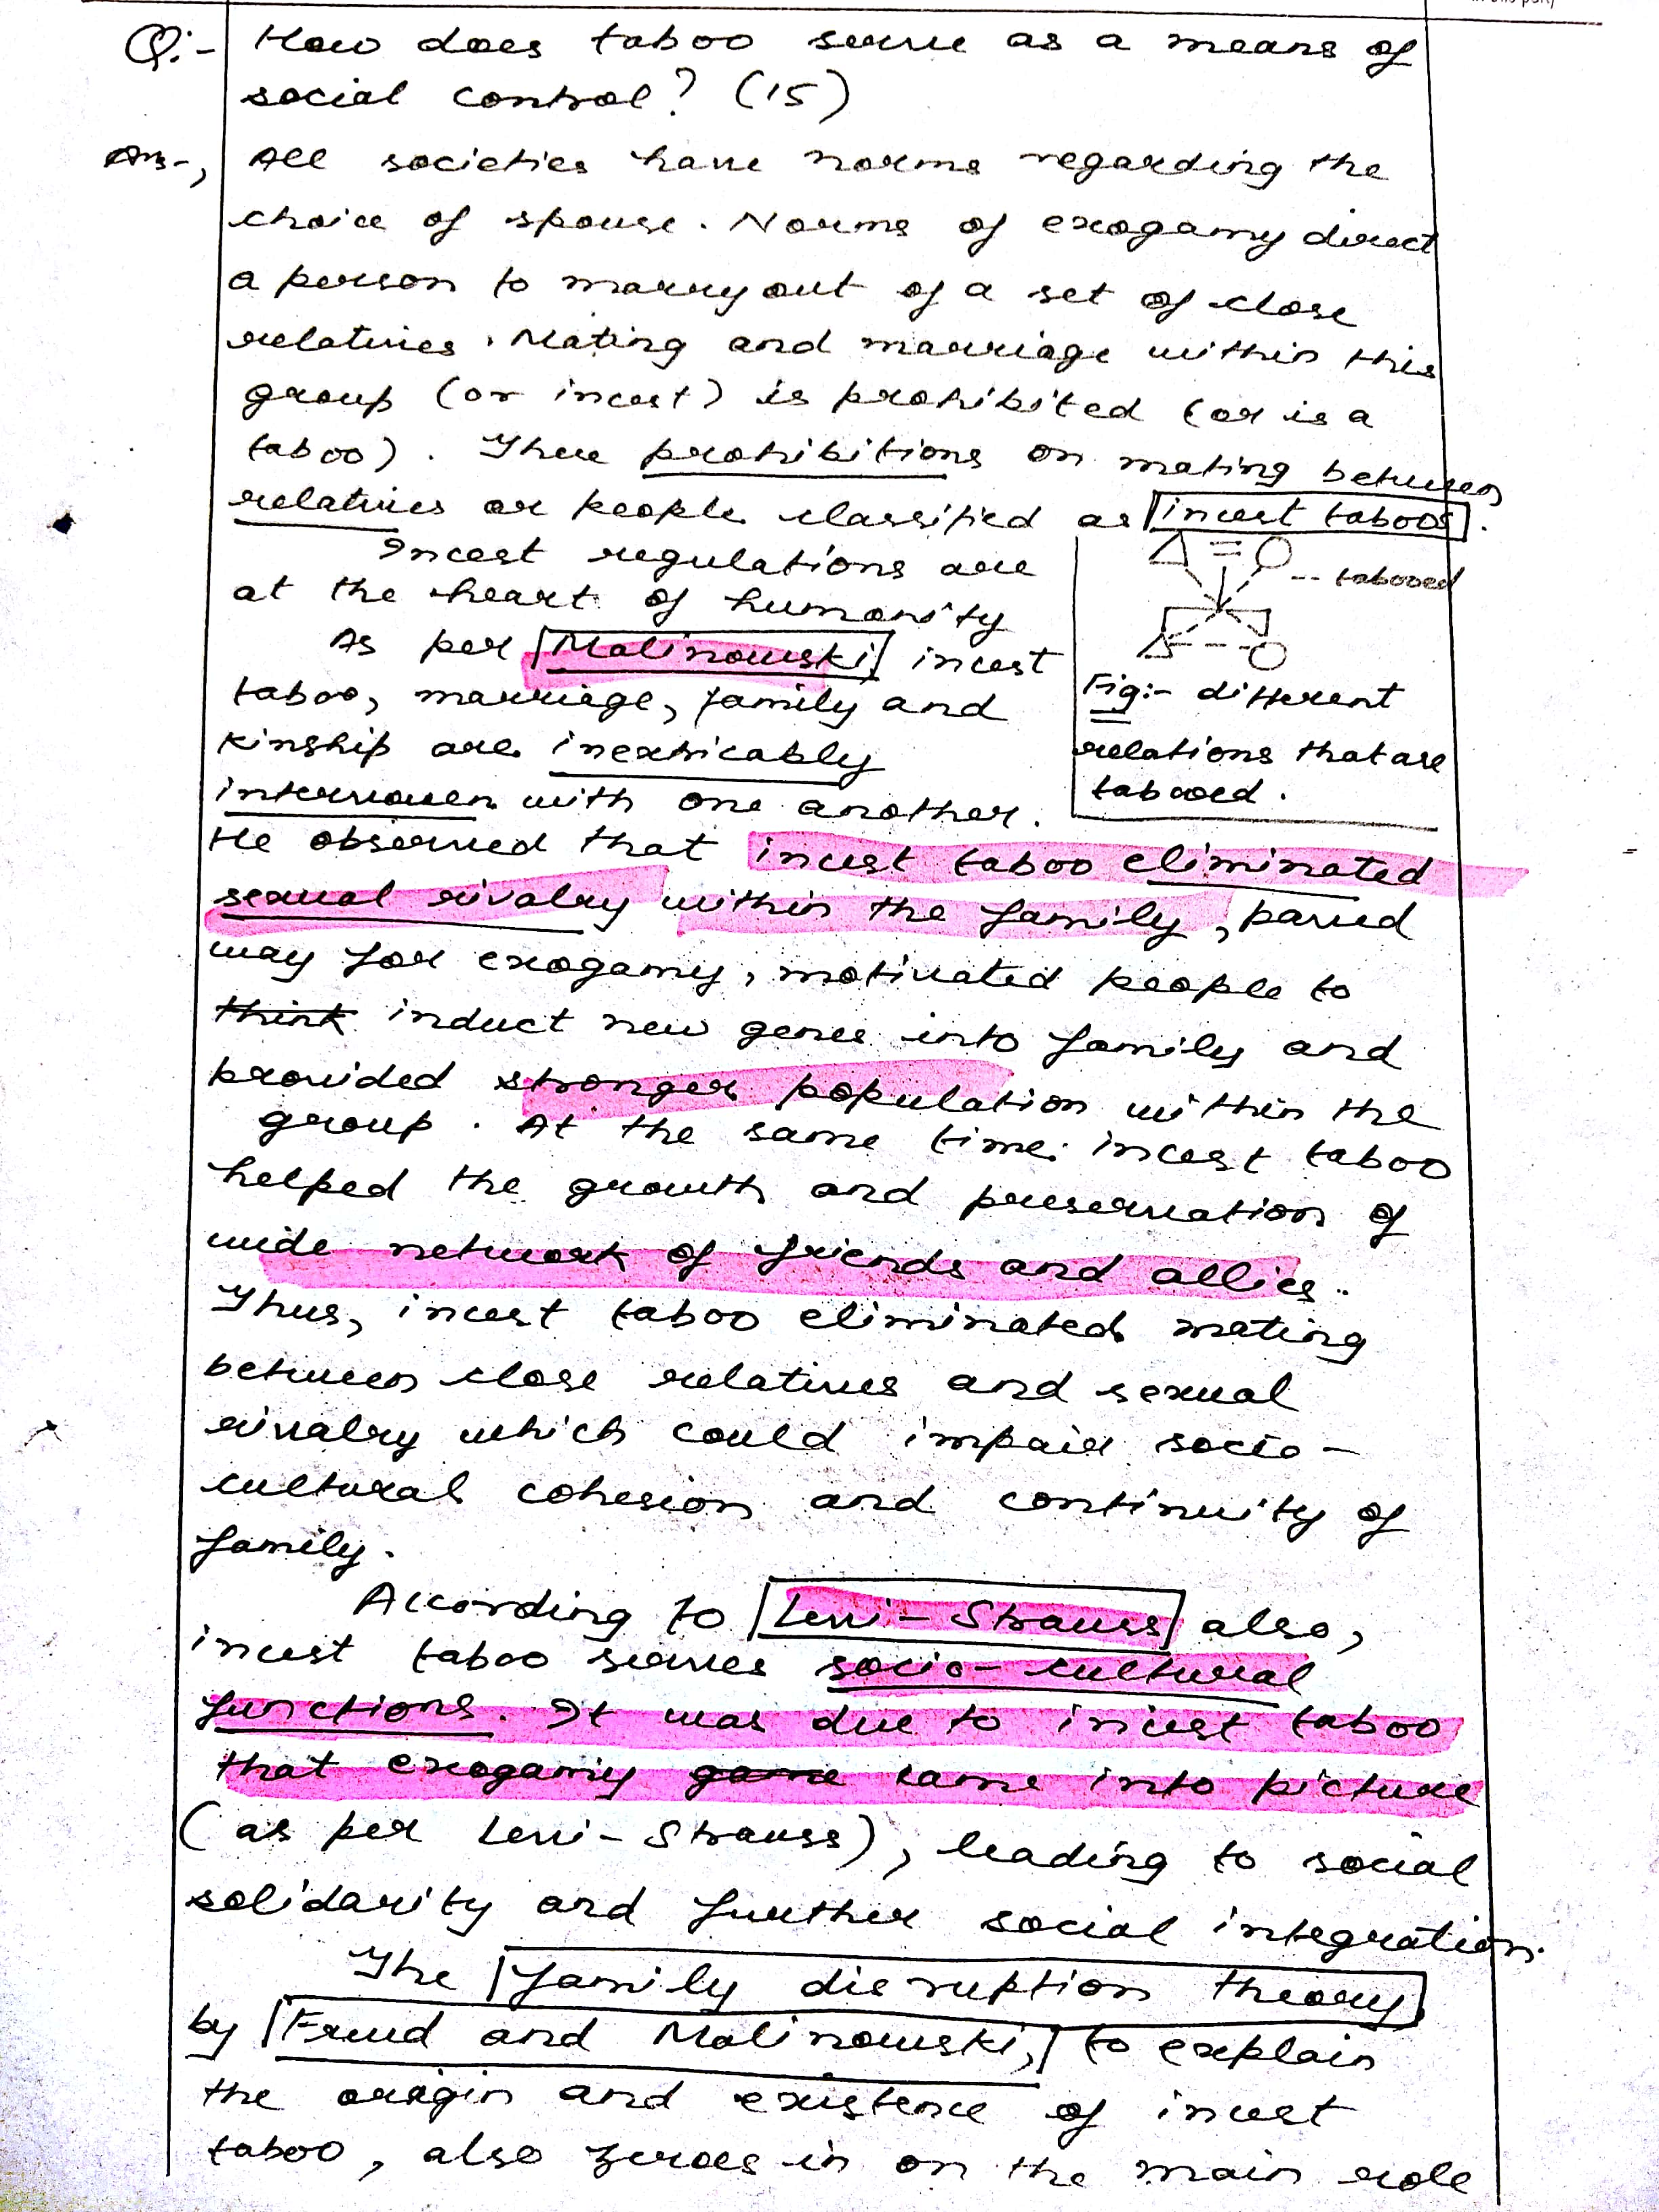 Q:- How does taboo serve as a means of
social control? (15)
Ans-, All societies have norms regarding the
choice of spouse. Norms of exogamy direct
a person to marry out of a set of close
relatives. Mating and marriage within this
group (or incest) is prohibited (or is a
taboo). These prohibitions on mating between
relatives or people classified as incest taboos.
Incest regulations are
at the heart of humanity
As per Malinowski incest
taboo, marriage, family and
kinship are inextricably
interwoven with one another.
-- tabooed
Fig:- different
relations that are
tabooed.
He observed that incest taboo eliminated
sexual rivalry within the family, paved
way for exogamy, motivated people to
think induct new genes into family and
provided stronger population within the
group. At the same time incest taboo
helped the growth and preservation of
wide network of friends and allies.
Thus, incest taboo eliminated mating
between close relatives and sexual
rivalry which could impair socio-
cultural cohesion and continuity of
family.
According to Levi-Strauss also,
incest taboo serves socio-cultural
functions. It was due to incest taboo
that exogamy game came into picture
(as per Levi-Strauss), leading to social
solidarity and further social integration.
The family disruption theory
by Freud and Malinowski, to explain
the origin and existence of incest
taboo, also zeroes in on the main role